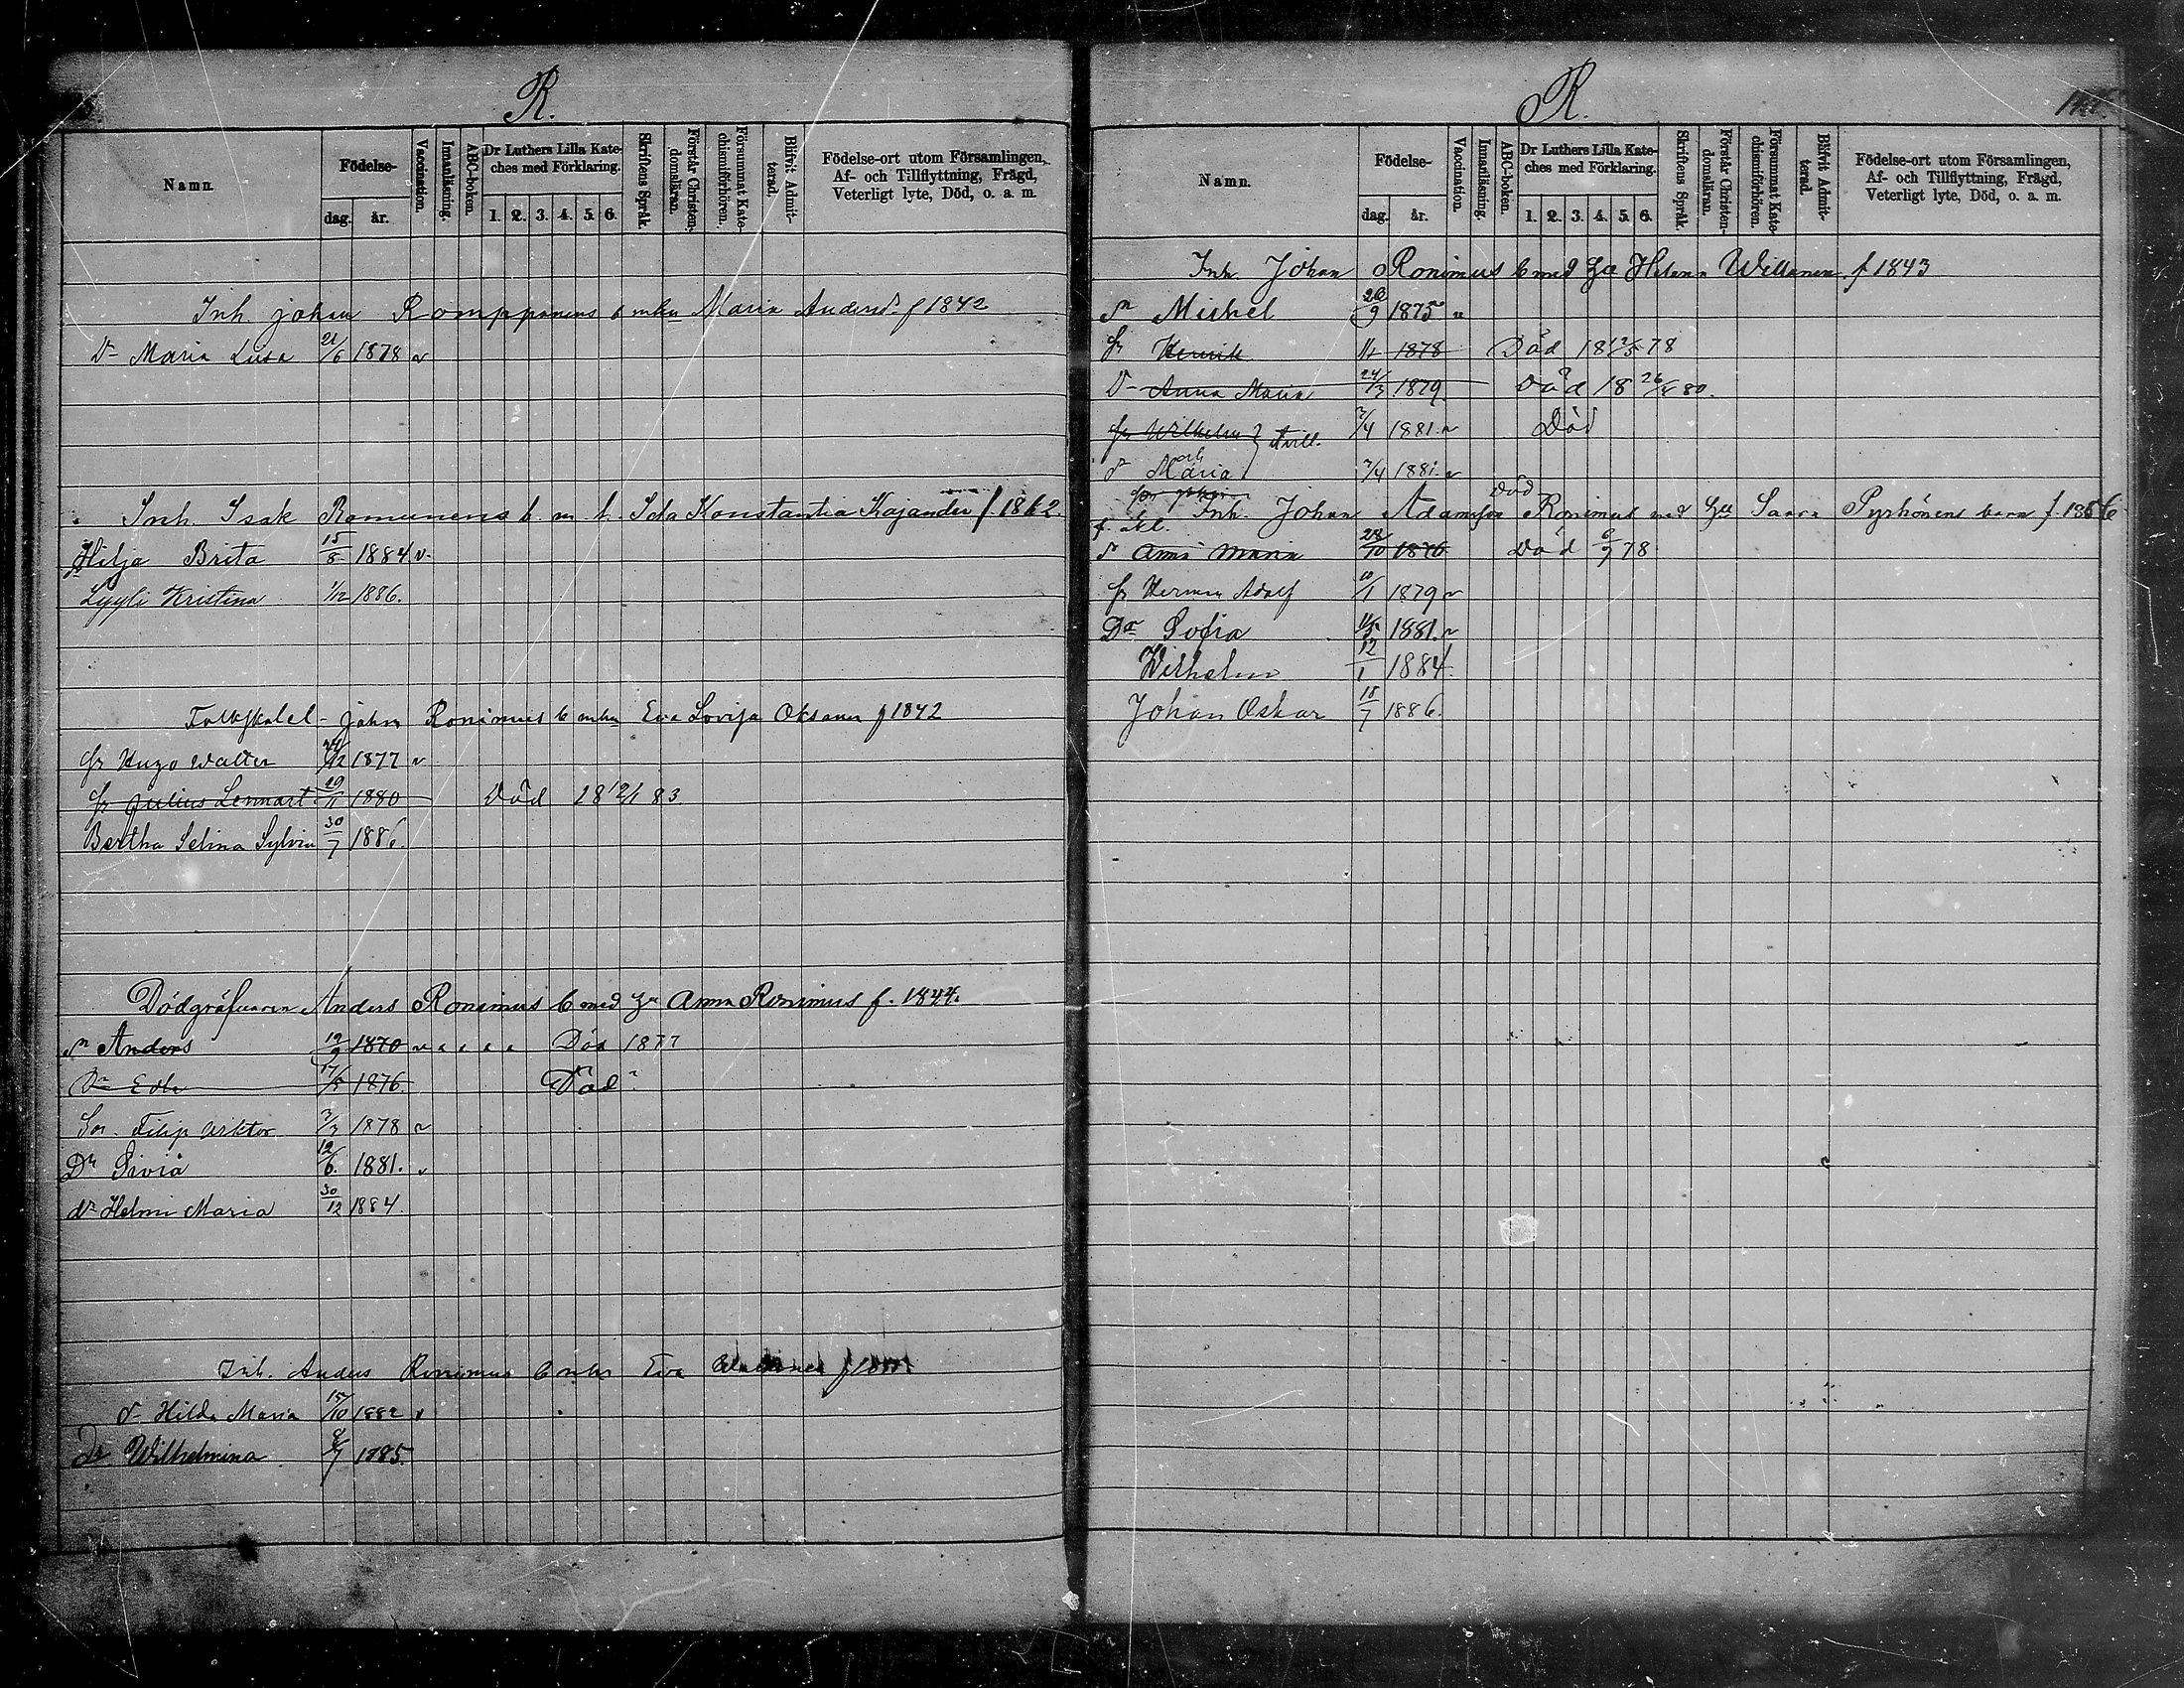 R.
Namn.
Födelse-
dag.
år.
Vaccination.
Innanläsning.
ABC-boken.
Dr Luthers Lilla Kate-
ches med Förklaring.
1. 2. 3. 4. 5. 6.
Skriftens Språk.
Förstår Christen-
domsläran.
Försummat Kate-
chismiförhören.
Blifvit Admit-
terad.
Födelse-ort utom Församlingen,
Af- och Tillflyttning, Frägd,
Veterligt lyte, Död, o. a. m.
Inh. Johan Romppanens b m hu Maria Andersd. f 1842
Dr Maria Lisa 21/6 1878 v
Inh. Isak Romunens b. m. h. Ida Konstantia Kajander f. 1862.
Hilja Brita 15/8 1884 v.
Lyyli Kristina 1/12 1886.
Johan Ronimus b m hu Eva Lovisa Oksanen f 1842
Hugo Walter 24/12 1877 v
Julius Lennart 29/11 1880 Död 18 12/1 83
Bertha Selina Sylvia 30/7 1886.
Dödgräfvaren Anders Ronimus b med hu Anna Ronimus f. 1844.
Sn Anders 19/9 1870 Död 1877
Dr 17/5 1876 Död
Son Filip Viktor 7/3 1878 v
Dr Siviä 12/6. 1881. v
Dr Helmi Maria 30/12 1884.
Inh. Anders Ronimus b m hu Eva
Dr Hilda Maria 15/10 1882 v
Dr Wilhelmina 8/7 1885.
R.
Namn.
Födelse-
dag.
år.
Vaccination.
Innanläsning.
ABC-boken.
Dr Luthers Lilla Kate-
ches med Förklaring.
1. 2. 3. 4. 5. 6.
Skriftens Språk.
Förstår Christen-
domsläran.
Försummat Kate-
chismiförhören.
Blifvit Admit-
terad.
Födelse-ort utom Församlingen,
Af- och Tillflyttning, Frägd,
Veterligt lyte, Död, o. a. m.
Inh. Johan Ronimus b med Hu Helena Willanen f 1843
Sn Michel 26/9 1875 v
Henrik 1878 Död
Dr Anna Maria 24/3 1879 Död 18 80.
Wilhelm 7/4 1881. v Död
och tvill.
Dr Maria 7/4 1881. v
Död
Inh. Johan Adamson Ronimus med Hu Saara Pyrhönens barn f. 1856
Dr Anna Maria 28/10 1876 Död 6/9 78
Herman Adolf 10/1 1879 v
Dr Sofia 1881. v
Wilhelm 12/1 1884.
Johan Oskar 18/7 1886.